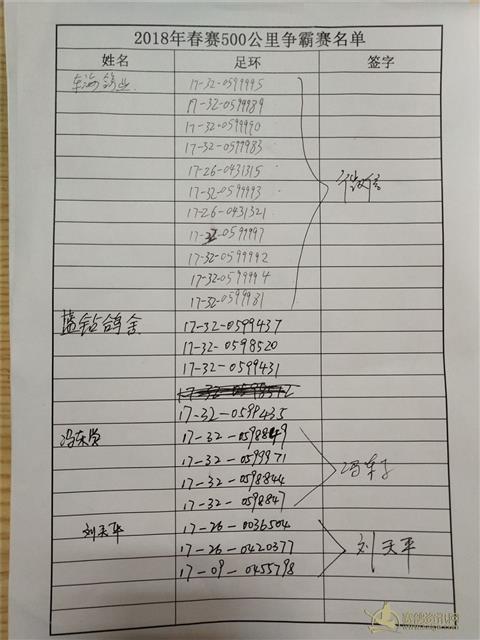 2018年春赛500公里争霸赛名单
姓名 足环 签字
东海鸽业 17-32-0599995
17-32-0599989
17-32-0599990
17-32-0599983
17-26-0431315
17-32-0599993
17-26-0431321
17-32-0599997
17-32-0599992
17-32-0599994
17-32-0599981
蓝钻鸽舍 17-32-0599437
17-32-0598520
17-32-0599431
17-32-0599435
17-32-0598849
17-32-0599971
17-32-0598844
17-32-0598847
刘天平 17-26-0036504
17-26-0420377 刘天平
17-09-0455798